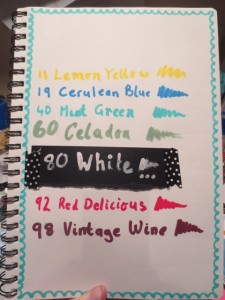 11 Lemon Yellow
19 Cerulean Blue
40 Mint Green
60 Celadon
80 White
92 Red Delicious
98 Vintage Wine